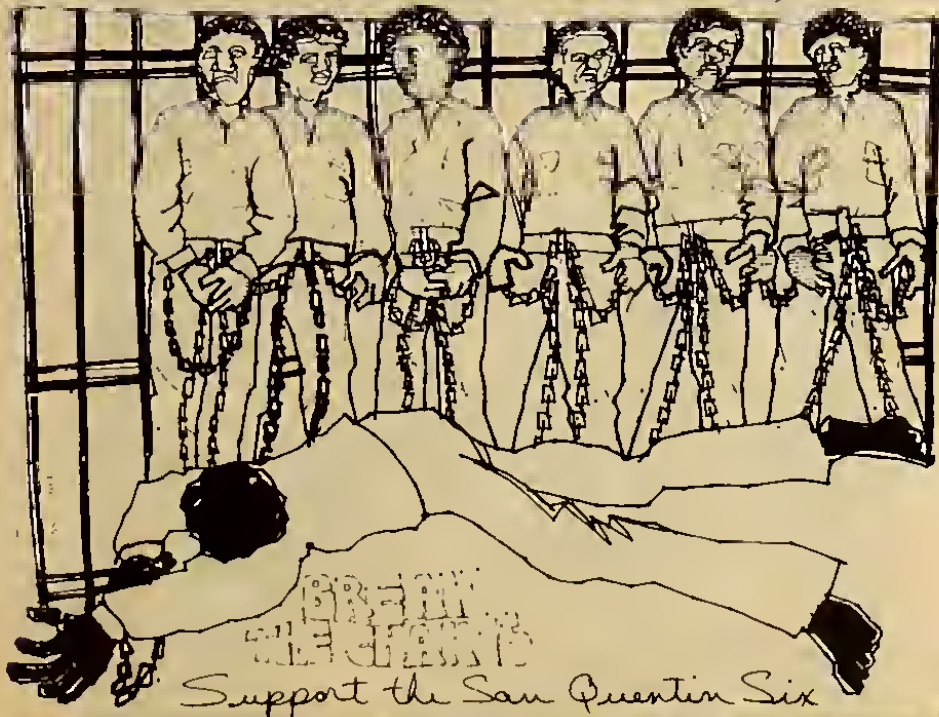 BREAK
THE CHAINS
Support the San Quentin Six